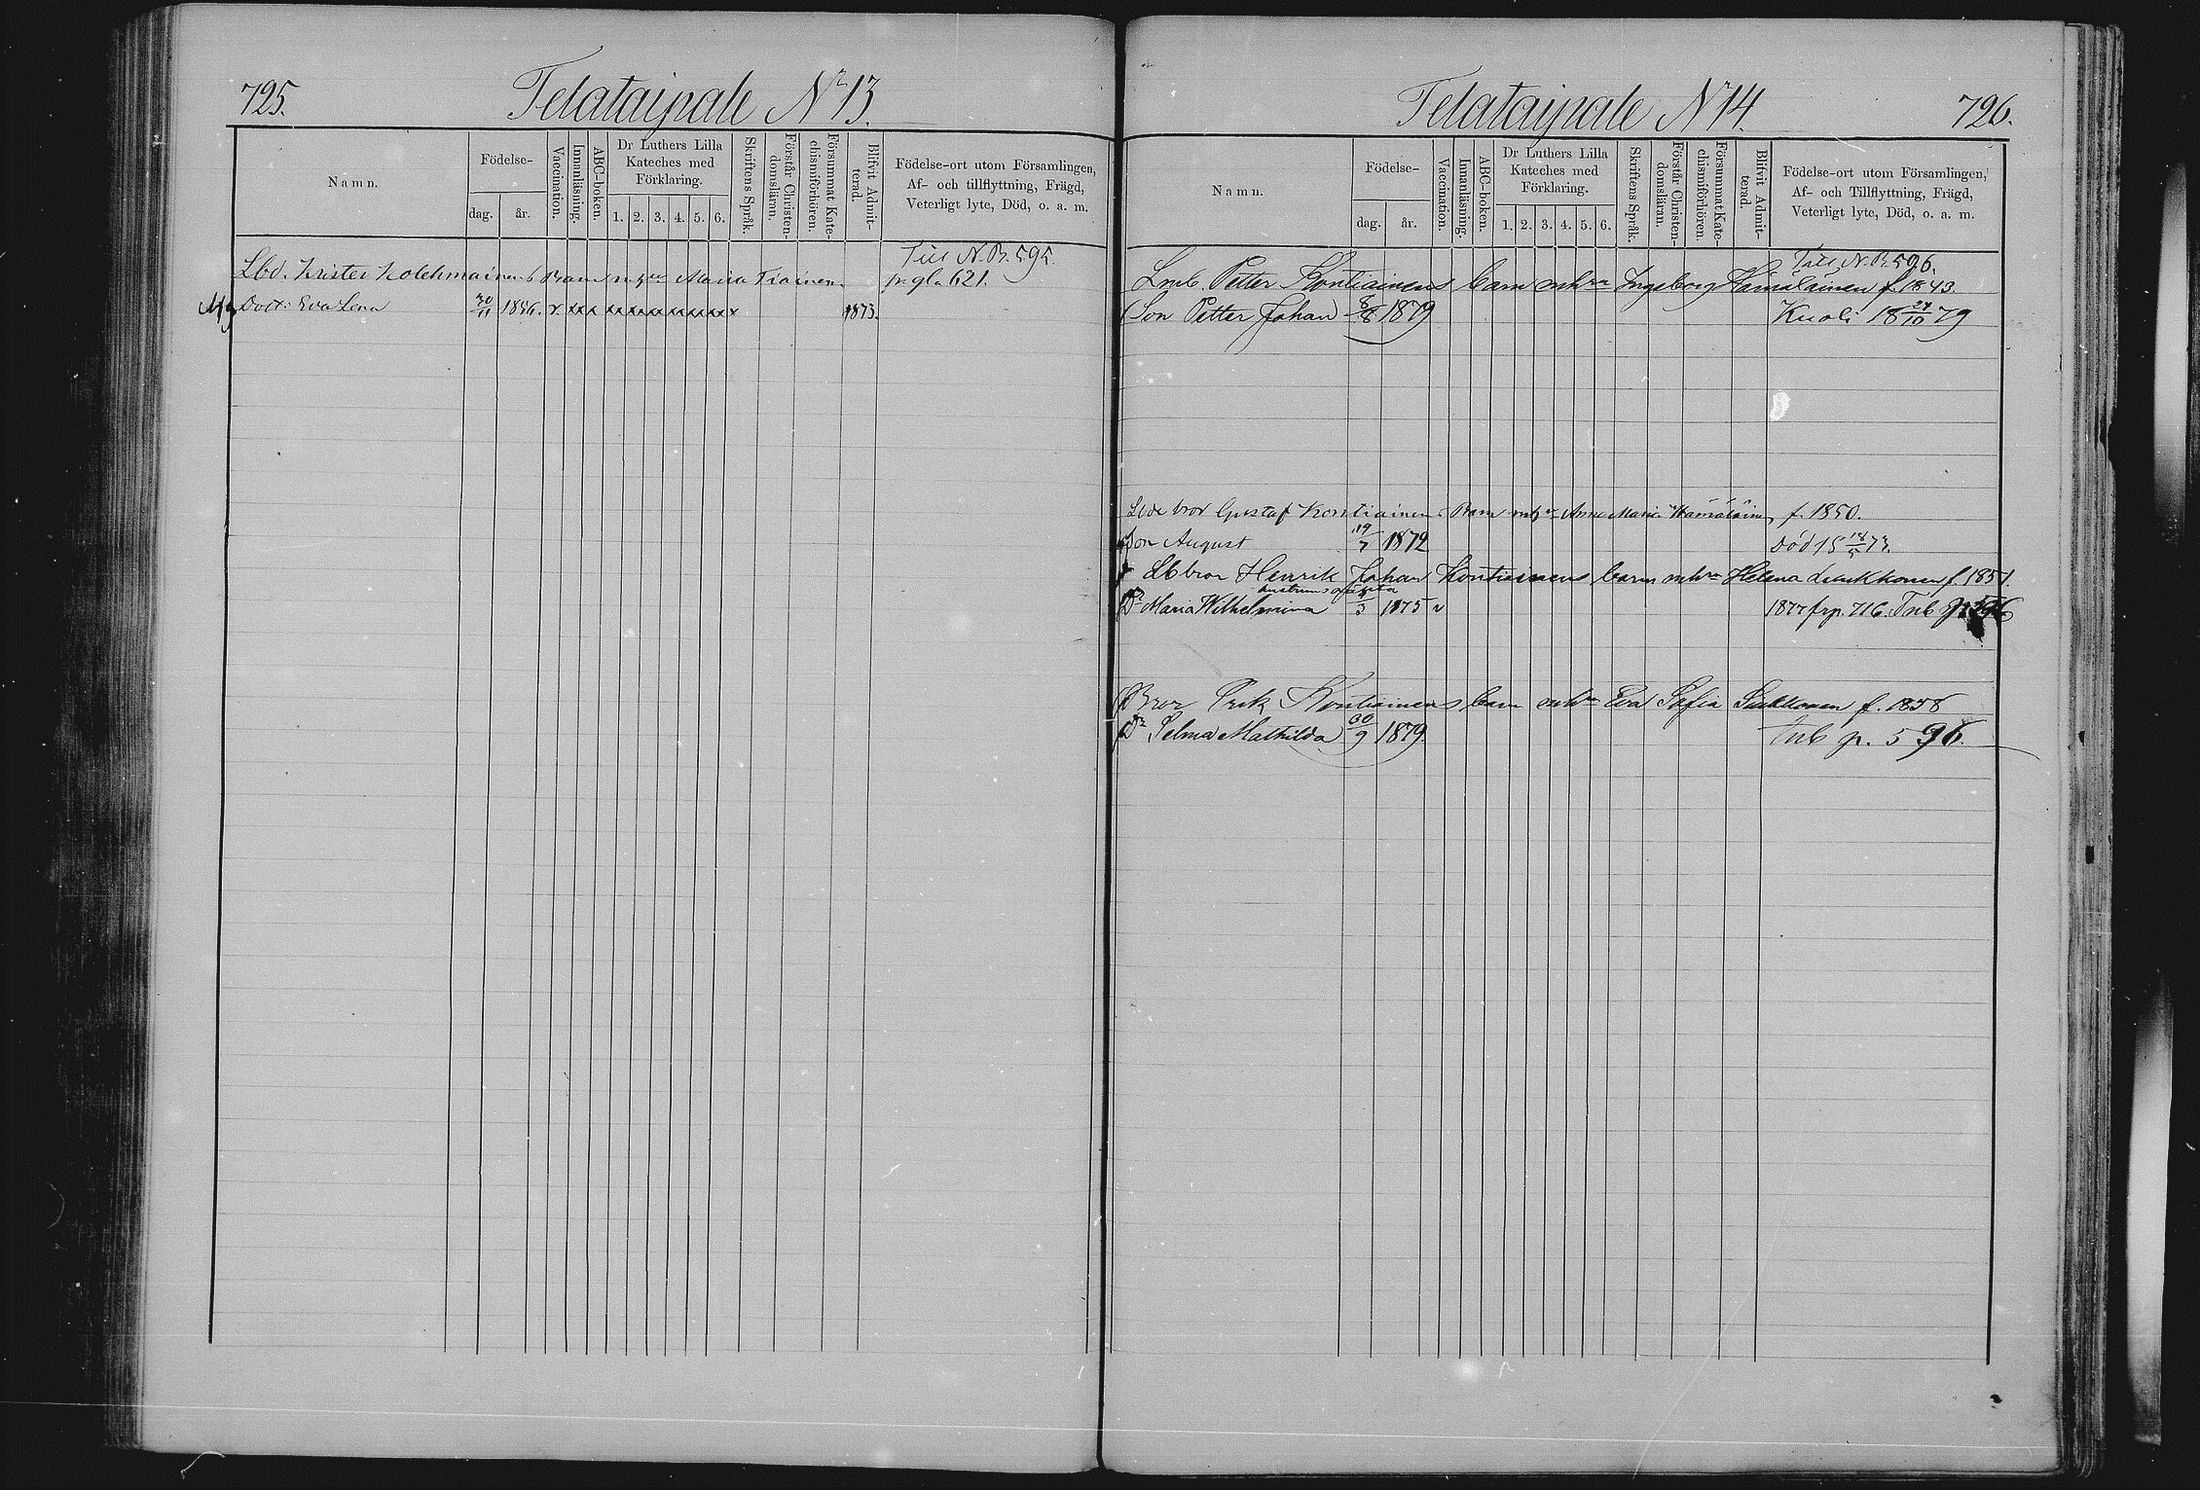 725.
Telataipale No 13.
Namn.
Födelse-
dag. år.
Vaccination.
Innanläsning.
ABC-boken.
Dr Luthers Lilla Kateches med Förklaring.
1. 2. 3. 4. 5. 6.
Skriftens Språk.
Förstår Christendomsläran.
Försummat Katechismiförhören.
Blifvit Admitterad.
Födelse-ort utom Församlingen,
Af- och tillflyttning, Frägd,
Veterligt lyte, Död, o. a. m.
Till N.B. 595
Lbd. Krister Kolehmainens Barn m hu Maria Tiainen pr gla 621.
Dottr Eva Lena 30/11 1856. v xxx xxxxxxxxxxxx 1873.
Telataipale No 14.
726.
Namn.
Födelse-
dag. år.
Vaccination.
Innanläsning.
ABC-boken.
Dr Luthers Lilla
Kateches med
Förklaring.
1. 2. 3. 4. 5. 6.
Skriftens Språk.
Förstår Christendomsläran.
Försummat Katechismiförhören.
Blifvit Admitterad.
Födelse-ort utom Församlingen,
Af- och Tillflyttning, Frägd,
Veterligt lyte, Död, o. a. m.
Till N.B. 596.
Petter Kontiainens barn m hu Ingeborg Hämäläinen f. 1843.
Son Petter Johan 8/8 1879 Kuoli 18 27/10 79
bror Gustaf Kontiainens Barn m hu Anna Maria Hämäläinen f. 1850.
Son August 19/7 1872 Död 18 18/5 73.
Lb bror Henrik Johan Kontiainens barn m hu Helena Luukkonen f. 1851.
Dr Maria Wilhelmina /3 1875 v 1877 fr p. 716. Tnb p 596
Bror Erik Kontiainens barn m hu Eva Sofia f. 1858
Dr Selma Mathilda 30/9 1879. Tnb p. 596.